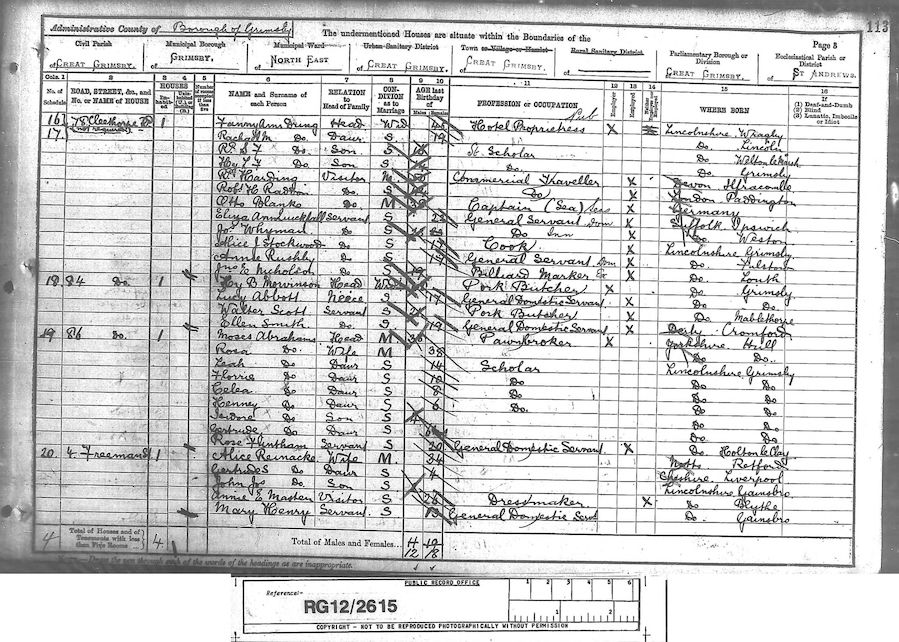 Administrative County of Borough of Grimsby The undermentioned Houses are situate within the Boundaries of the 113
Page 3
Civil Parish Municipal Borough Municipal Ward Urban Sanitary District Town or Village or Hamlet Rural Sanitary District Parliamentary Borough or Division Ecclesiastical Parish or District
of GREAT GRIMSBY. of GRIMSBY. of NORTH EAST of GREAT GRIMSBY. of GREAT GRIMSBY. of of GREAT GRIMSBY. of ST ANDREWS.
Cols. 1 2 3 4 5 6 7 8 9 10 11 12 13 14 15 16
No. of Schedule ROAD, STREET, &c., and No. or NAME of HOUSE HOUSES NAME and Surname of each Person RELATION to Head of Family CONDITION as to Marriage AGE last Birthday of PROFESSION or OCCUPATION Employer Employed WHERE BORN (1) Deaf-and-Dumb (2) Blind (3) Lunatic, Imbecile or Idiot
16 78 Cleethorpe Rd 1 Fanny Ann Dring Head Wid Hotel Proprietress X Lincolnshire Wragby
17 (not required) Rachel M Do. Daur S 19 Do. Lincoln
S F Do Son S Scholar Do
Hy L F Do Son S Do. Do. Grimsby
Harding Visitor M Commercial Traveller X Devon Ilfracombe
Robt H Do. S Do X London Paddington
Otto Blanke Do M Captain (Sea) X Germany
Eliza Ann Servant S 23 General Servant Dom X Suffolk Ipswich
Jos Whyman Do S Do Inn X Do. Weston
Alice J Stockwood Do S 17 Cook X Lincolnshire Grimsby
Annie Rushby Do S 19 General Servant Dom X Do.
Jno E Nicholson Do S 19 Billiard Marker X Do. Louth
18 84 Do. 1 Hy B Head Pork Butcher X Do. Grimsby
Lucy Abbott Neece S 17 General Domestic Servant X Do. Do.
Walter Scott Servant S Pork Butcher X Do. Mablethorpe
Ellen Smith Do. S 19 General Domestic Servant X Derby Cromford
19 86 Do. 1 Moses Abrahams Head M 38 Pawnbroker X Yorkshire Hull
Rosa Do. Wife M 38 Do Do.
Leah Do Daur S 14 Scholar Lincolnshire Grimsby
Florrie Do Daur S 10 Do Do Do
Celea Do Daur S 8 Do Do Do
Henney Do Daur S 6 Do. Do. Do
Isidore Do Son S 4 Do. Do.
Gertrude Do Daur S Do. Do
Rose Servant S 20 General Domestic Servant X Do. Holton le Clay
20 4 Freeman St 1 Alice Reinacke Wife M 34 Notts Retford
Gertrude S Do. Daur S 4 Cheshire Liverpool
John Jos Do. Son S Lincolnshire Gainsbro
Annie E Master Visitor S 26 Dressmaker X Do Blythe
Mary Henry Servant S 19 General Domestic Servt Do. Gainsbro
4 Total of Houses and of Tenements with less than Five Rooms 4 Total of Males and Females... 12 18
Draw the pen through such of the words of the headings as are inappropriate.
PUBLIC RECORD OFFICE
Reference:- 1 2 3 4 5 6
RG12/2615 1 2
COPYRIGHT - NOT TO BE REPRODUCED PHOTOGRAPHICALLY WITHOUT PERMISSION